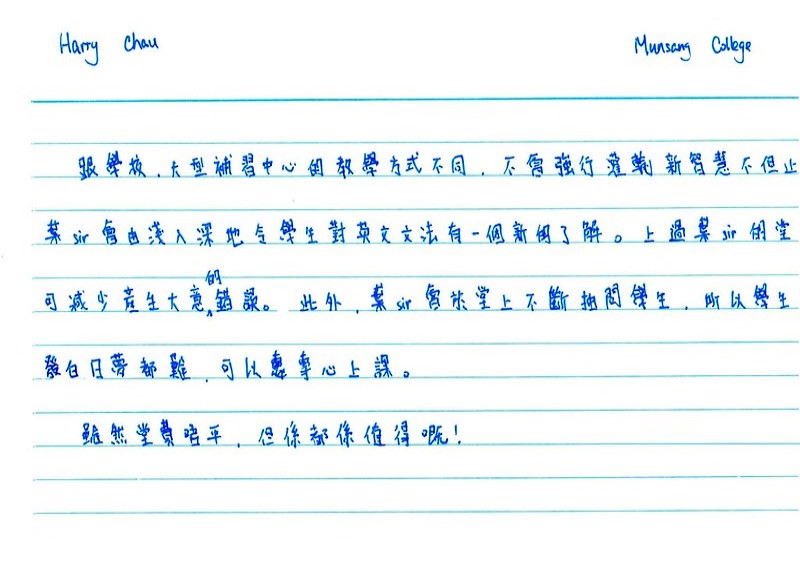 Harry Chau Munsang College
跟學校、大型補習中心的教學方式不同，不會強行灌輸新智慧不但止
葉sir會由淺入深地令學生對英文文法有一個新的了解。上過葉sir的堂
可減少產生大意的錯誤。此外，葉sir會於堂上不斷抽問學生，所以學生
發白日夢都難，可以專心上課。
雖然堂費唔平，但係都係值得嘅！